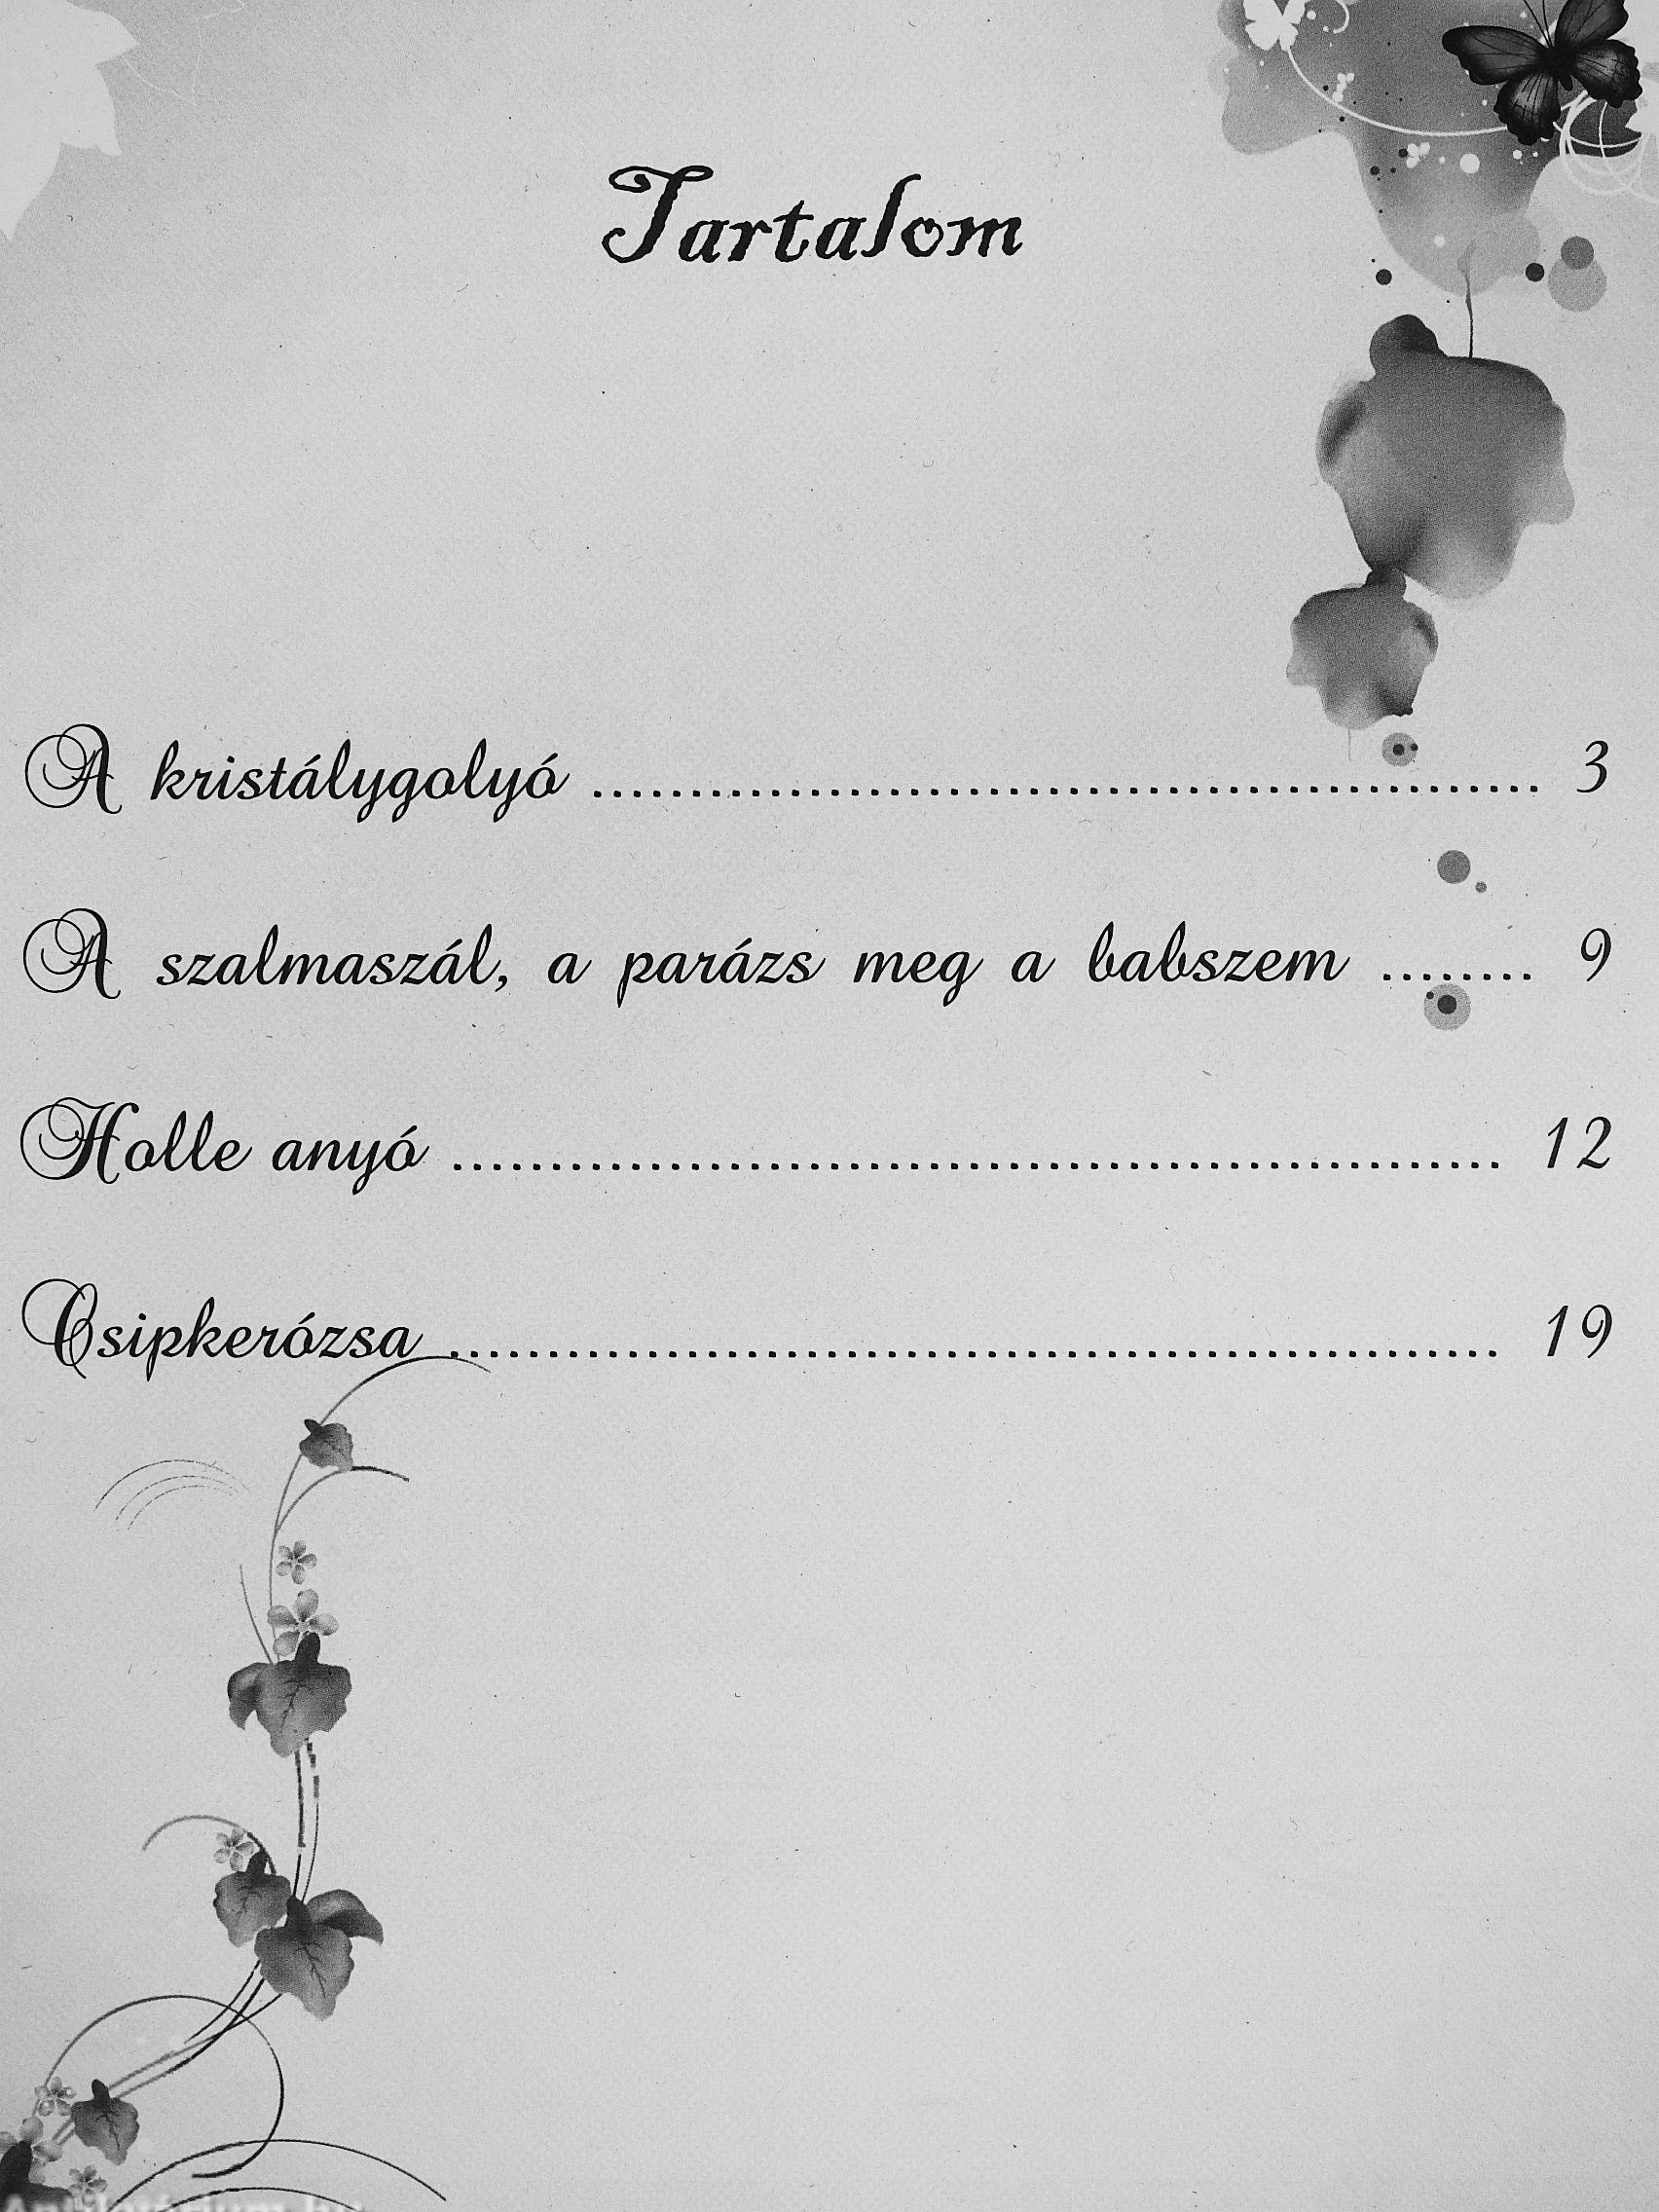 Tartalom
A kristálygolyó ................................................ 3
A szalmaszál, a parázs meg a babszem ........ 9
Holle anyó ..................................................... 12
Csipkerózsa ..................................................... 19